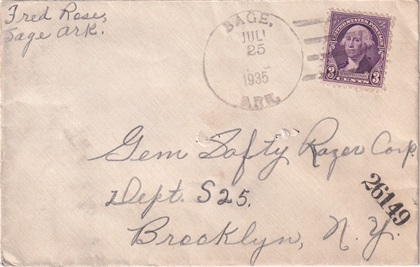 Fred Rose,
Sage Ark.
SAGE,
JUL
25
1935
ARK.
UNITED STATES POSTAGE
3 CENTS 3
Gem Safty Razer Corp
Dept. S25.
Brooklyn, N.Y.
26149